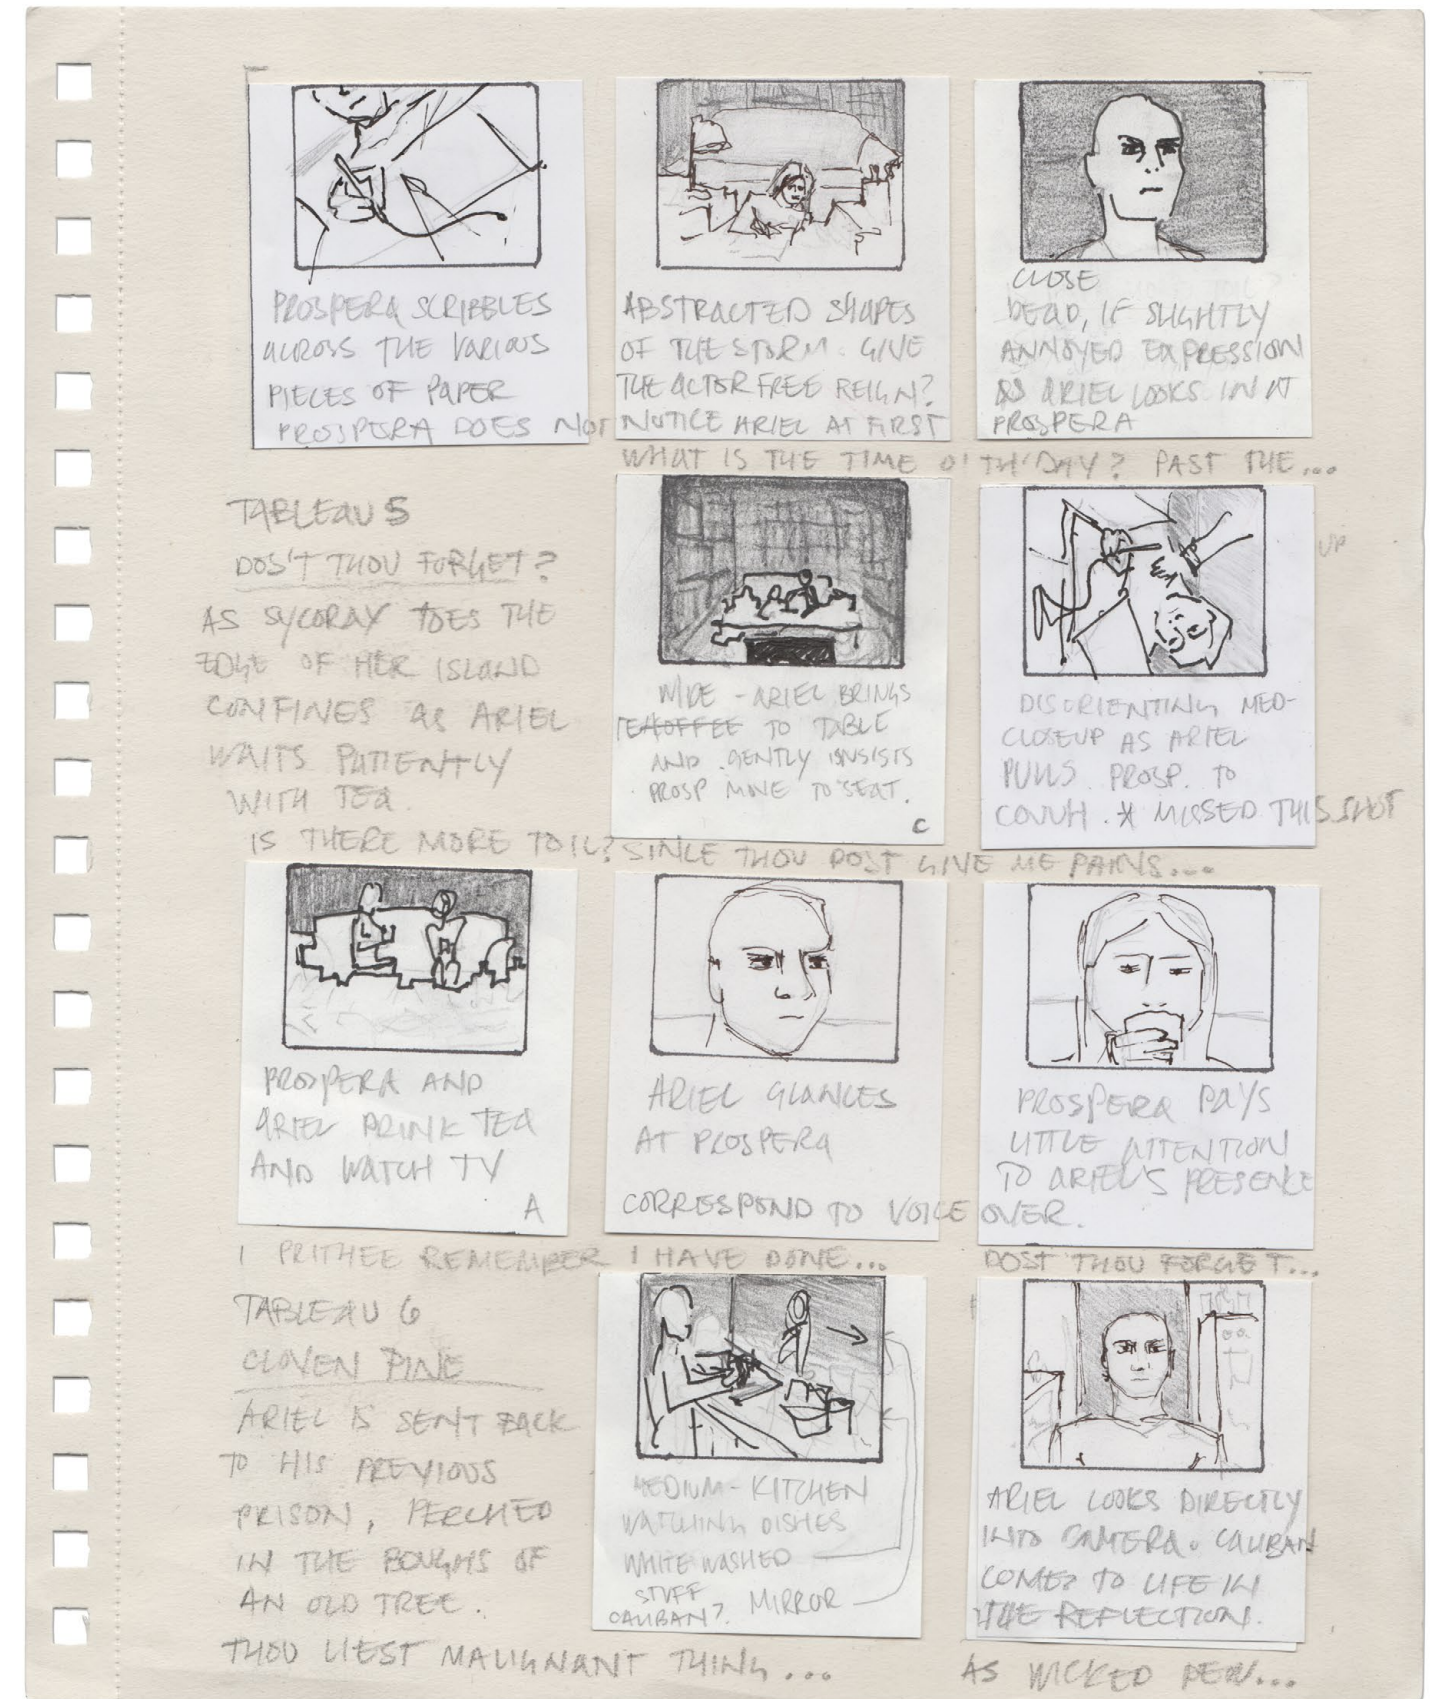 PROSPERA SCRIBBLES
ACROSS THE VARIOUS
PIECES OF PAPER
PROSPERA DOES NOT NOTICE ARIEL AT FIRST
ABSTRACTED SHAPES
OF THE STORM. GIVE
THE ACTOR FREE REIGN?
CLOSE
DEAD, IF SLIGHTLY
ANNOYED EXPRESSION
AS ARIEL LOOKS IN AT
PROSPERA
WHAT IS THE TIME O' TH' DAY? PAST THE...
TABLEAU 5
DOS'T THOU FORGET?
AS SYCORAX TOES THE
EDGE OF HER ISLAND
CONFINES AS ARIEL
WAITS PATIENTLY
WITH TEA.
WIDE - ARIEL BRINGS
TO TABLE
AND GENTLY INSISTS
PROSP MOVE TO SEAT.
C
UP
DISORIENTING MED-
CLOSEUP AS ARIEL
PULLS PROSP. TO
COUCH. * MISSED THIS SHOT
IS THERE MORE TOIL? SINCE THOU DOST GIVE ME PAINS...
PROSPERA AND
ARIEL DRINK TEA
AND WATCH TV
A
ARIEL GLANCES
AT PROSPERA
CORRESPOND TO VOICE OVER.
PROSPERA PAYS
LITTLE ATTENTION
TO ARIEL'S PRESENCE
I PRITHEE REMEMBER I HAVE DONE...
DOST THOU FORGET...
TABLEAU 6
CLOVEN PINE
ARIEL IS SENT BACK
TO HIS PREVIOUS
PRISON, PERCHED
IN THE BOUGHS OF
AN OLD TREE.
MEDIUM - KITCHEN
WATCHING DISHES
WHITE WASHED
STUFF
CALIBAN? MIRROR
ARIEL LOOKS DIRECTLY
INTO CAMERA. CALIBAN
COMES TO LIFE IN
THE REFLECTION.
THOU LIEST MALIGNANT THING...
AS WICKED DEW...